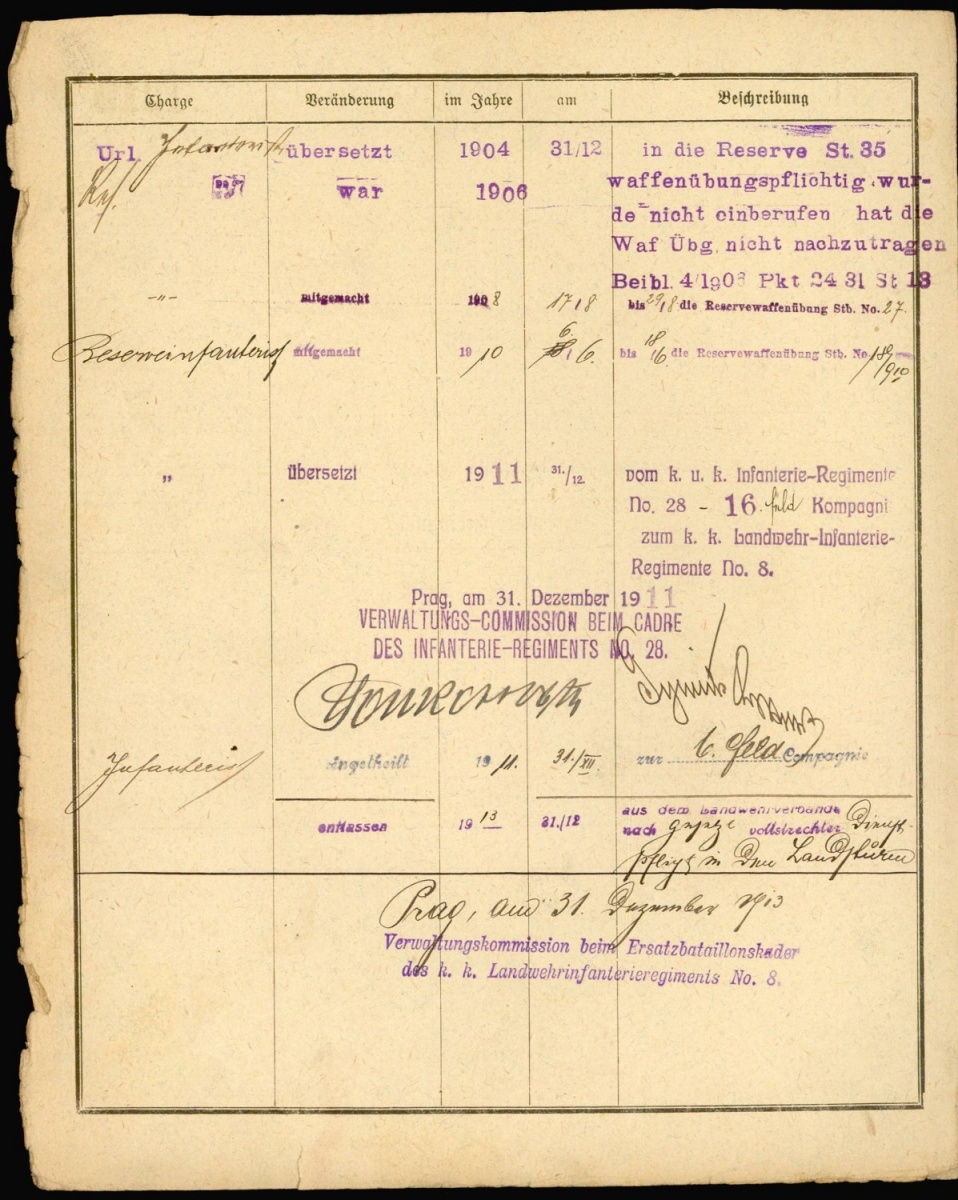 Charge Veränderung im Jahre am Beschreibung
Url. Infanterist übersetzt 1904 31/12 in die Reserve St. 35
Res. war 1906 waffenübungspflichtig wur-
de nicht einberufen hat die
Waf Übg. nicht nachzutragen
Beibl. 4/1906 Pkt 24 31 St 13
-"- mitgemacht 1908 17/8 bis 29/8 die Reservewaffenübung Stb. No. 27.
Reserveinfanterist mitgemacht 1910 6./6. bis 18/6 die Reservewaffenübung Stb. No.
" übersetzt 1911 31./12 vom k. u. k. Infanterie-Regimente
No. 28 - 16. feld Kompagni
zum k. k. Landwehr-Infanterie-
Regimente No. 8.
Prag, am 31. Dezember 1911
VERWALTUNGS-COMMISSION BEIM CADRE
DES INFANTERIE-REGIMENTS NO. 28.
Infanterist Eingetheilt 1911. 31./XII. zur 6. Feld Compagnie
entlassen 1913 31./12 aus dem Landwehrverbande
nach gesezl vollstreckter Dienst-
pflicht in den Landsturm
Prag, am 31. Dezember 1913
Verwaltungskommission beim Ersatzbataillonskader
des k. k. Landwehrinfanterieregiments No. 8.